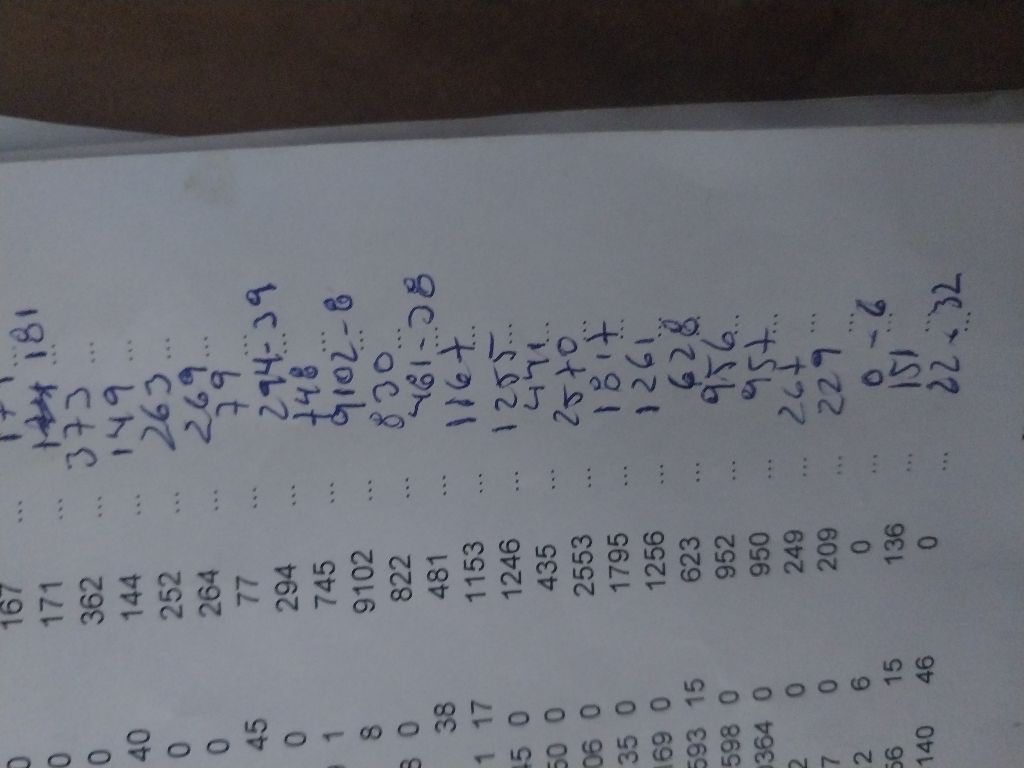 0 167 ...
0 171 ... 181 ...
0 362 ... 373 ...
40 144 ... 149 ...
0 252 ... 263 ...
0 264 ... 269 ...
45 77 ... 79 ...
0 294 ... 294-39
1 745 ... 748 ...
8 9102 ... 9102-8
8 0 822 ... 830 ...
38 481 ... 481-38
1 17 1153 ... 1167 ...
45 0 1246 ... 1255 ...
50 0 435 ... 441 ...
06 0 2553 ... 2570 ...
35 0 1795 ... 1817 ...
169 0 1256 ... 1261 ...
593 15 623 ... 628 ...
598 0 952 ... 956 ...
0364 0 950 ... 957 ...
2 0 249 ... 267 ...
7 0 209 ... 229 ...
2 6 0 ... 0-6
56 15 136 ... 151 ...
140 46 0 ... 22-32